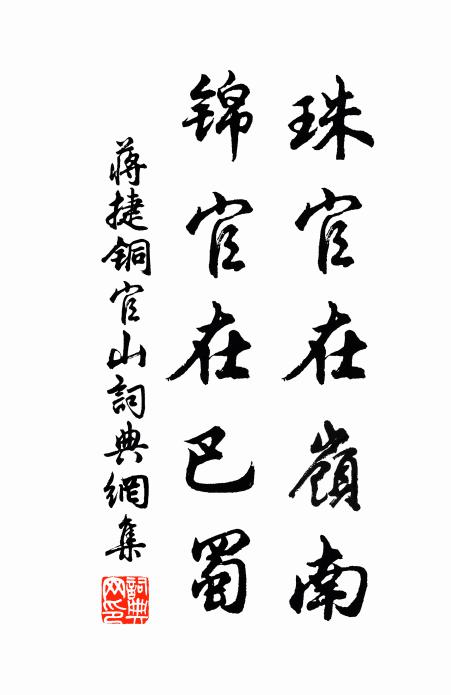 珠官在嶺南
锦官在巴蜀
蒋捷铜官山詞典網集
詞典网印